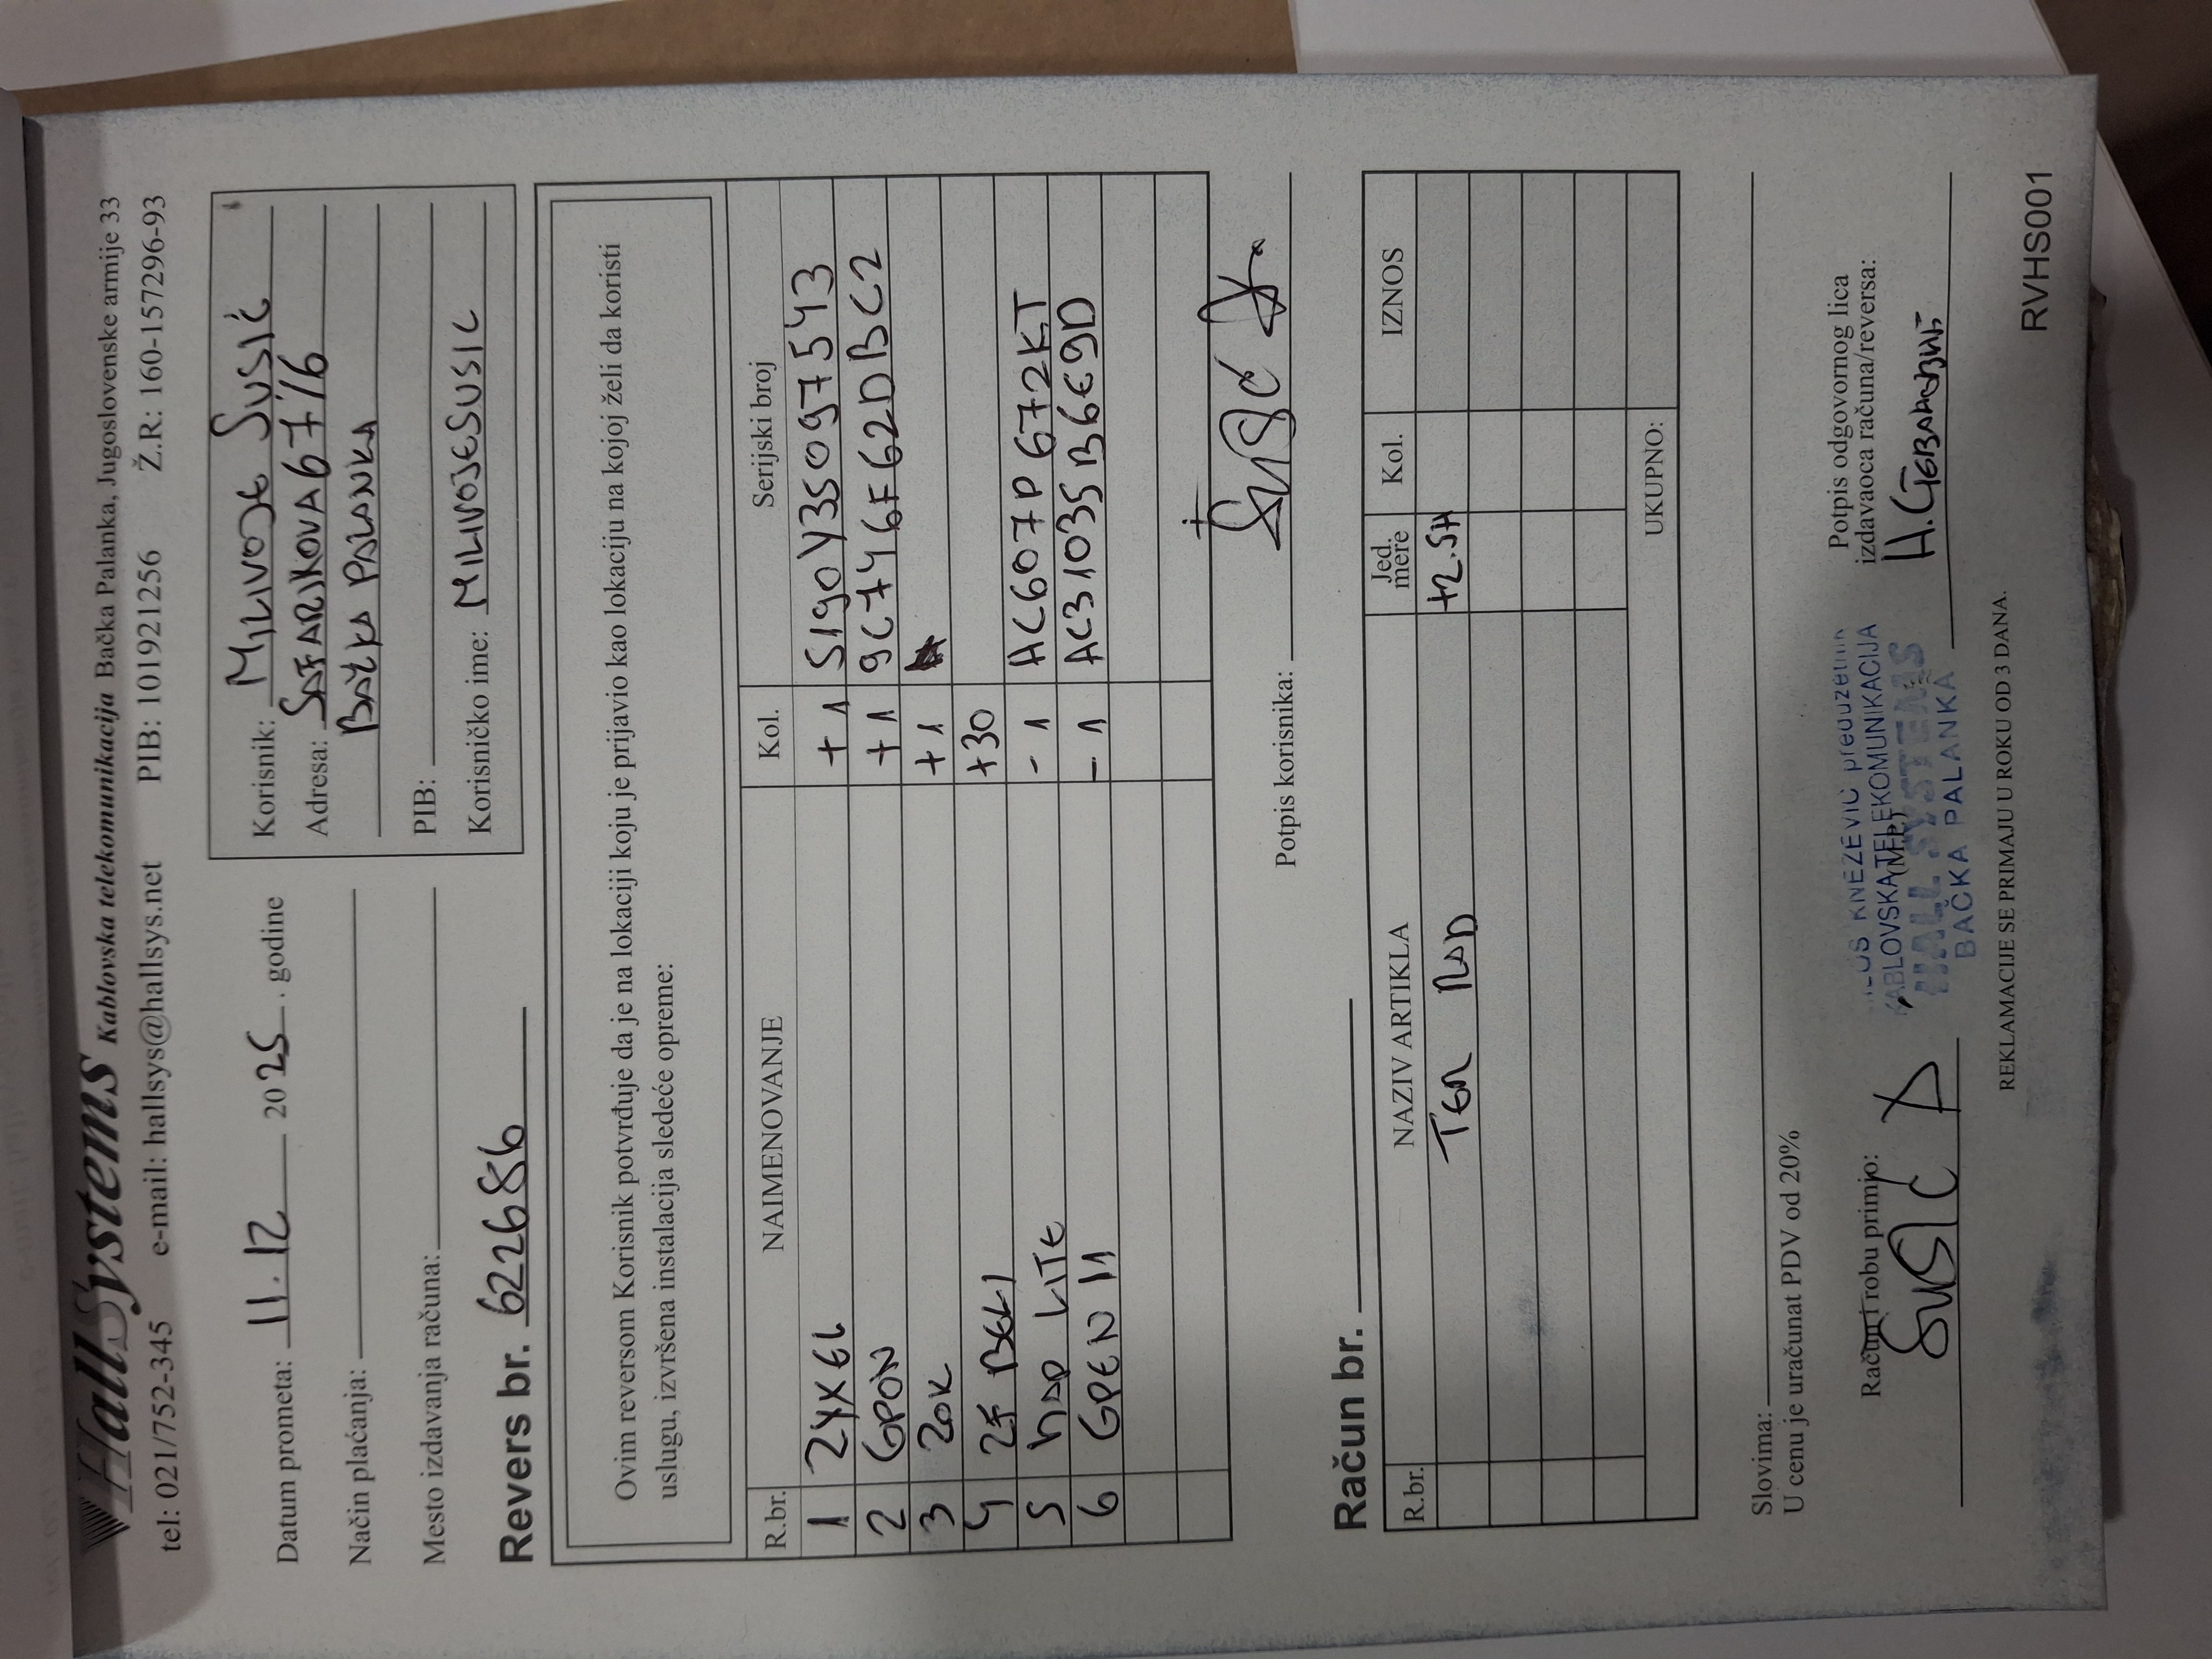 HallSystems Kablovska telekomunikacija Bačka Palanka, Jugoslovenske armije 33
tel: 021/752-345 e-mail: hallsys@hallsys.net PIB: 101921256 Ž.R.: 160-157296-93
Datum prometa: 11.12 2025. godine
Način plaćanja:
Mesto izdavanja računa:
Korisnik: MILIVOJE SUSIĆ
Adresa: SAFARIKOVA 67/16
BAČKA PALANKA
PIB:
Korisničko ime: MILIVOJESUSIC
Revers br. 622686
Ovim reversom Korisnik potvrđuje da je na lokaciji koju je prijavio kao lokaciju na kojoj želi da koristi
uslugu, izvršena instalacija sledeće opreme:
R.br. NAIMENOVANJE Kol. Serijski broj
1 24XEL +1 S190Y35097543
2 GPON +1 9C746F62DBC2
3 ZOK +1
4 2F BEKI +30
5 HAP LITE -1 HC607P672KT
6 GPEN 11 -1 AC31035B6E9D
Potpis korisnika:
Račun br.
R.br. NAZIV ARTIKLA Jed. mere Kol. IZNOS
TER RAD +2.5H
UKUPNO:
Slovima:
U cenu je uračunat PDV od 20%
Račun i robu primio:
SUSIC
(M.P.)
KNEŽEVIĆ preduzetnik
KABLOVSKA TELEKOMUNIKACIJA
HALL SYSTEMS
BAČKA PALANKA
Potpis odgovornog lica
izdavaoca računa/reversa:
REKLAMACIJE SE PRIMAJU U ROKU OD 3 DANA.
RVHS001